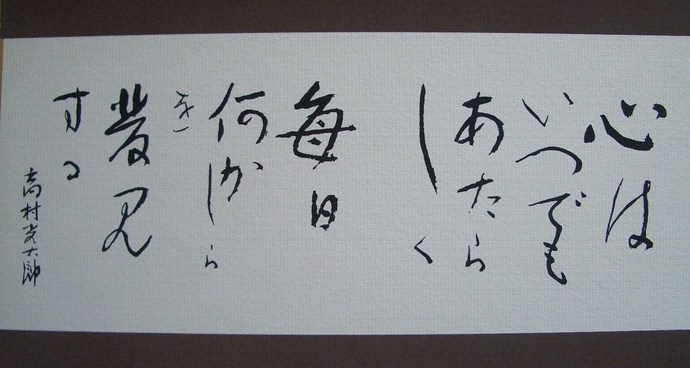 心は
いつでも
あたら
しく
毎日
何かしら
を
発見
する
高村光太郎